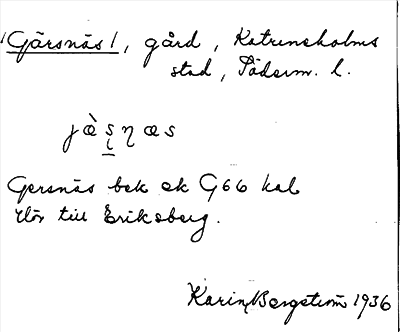 /Gärsnäs/, gård, Katrineholms
stad, Söderm. l.
jæ̀ʂɳæs
Gersnäs bek ek G66 kab
Hör till Eriksberg.
Karin Bergström 1936